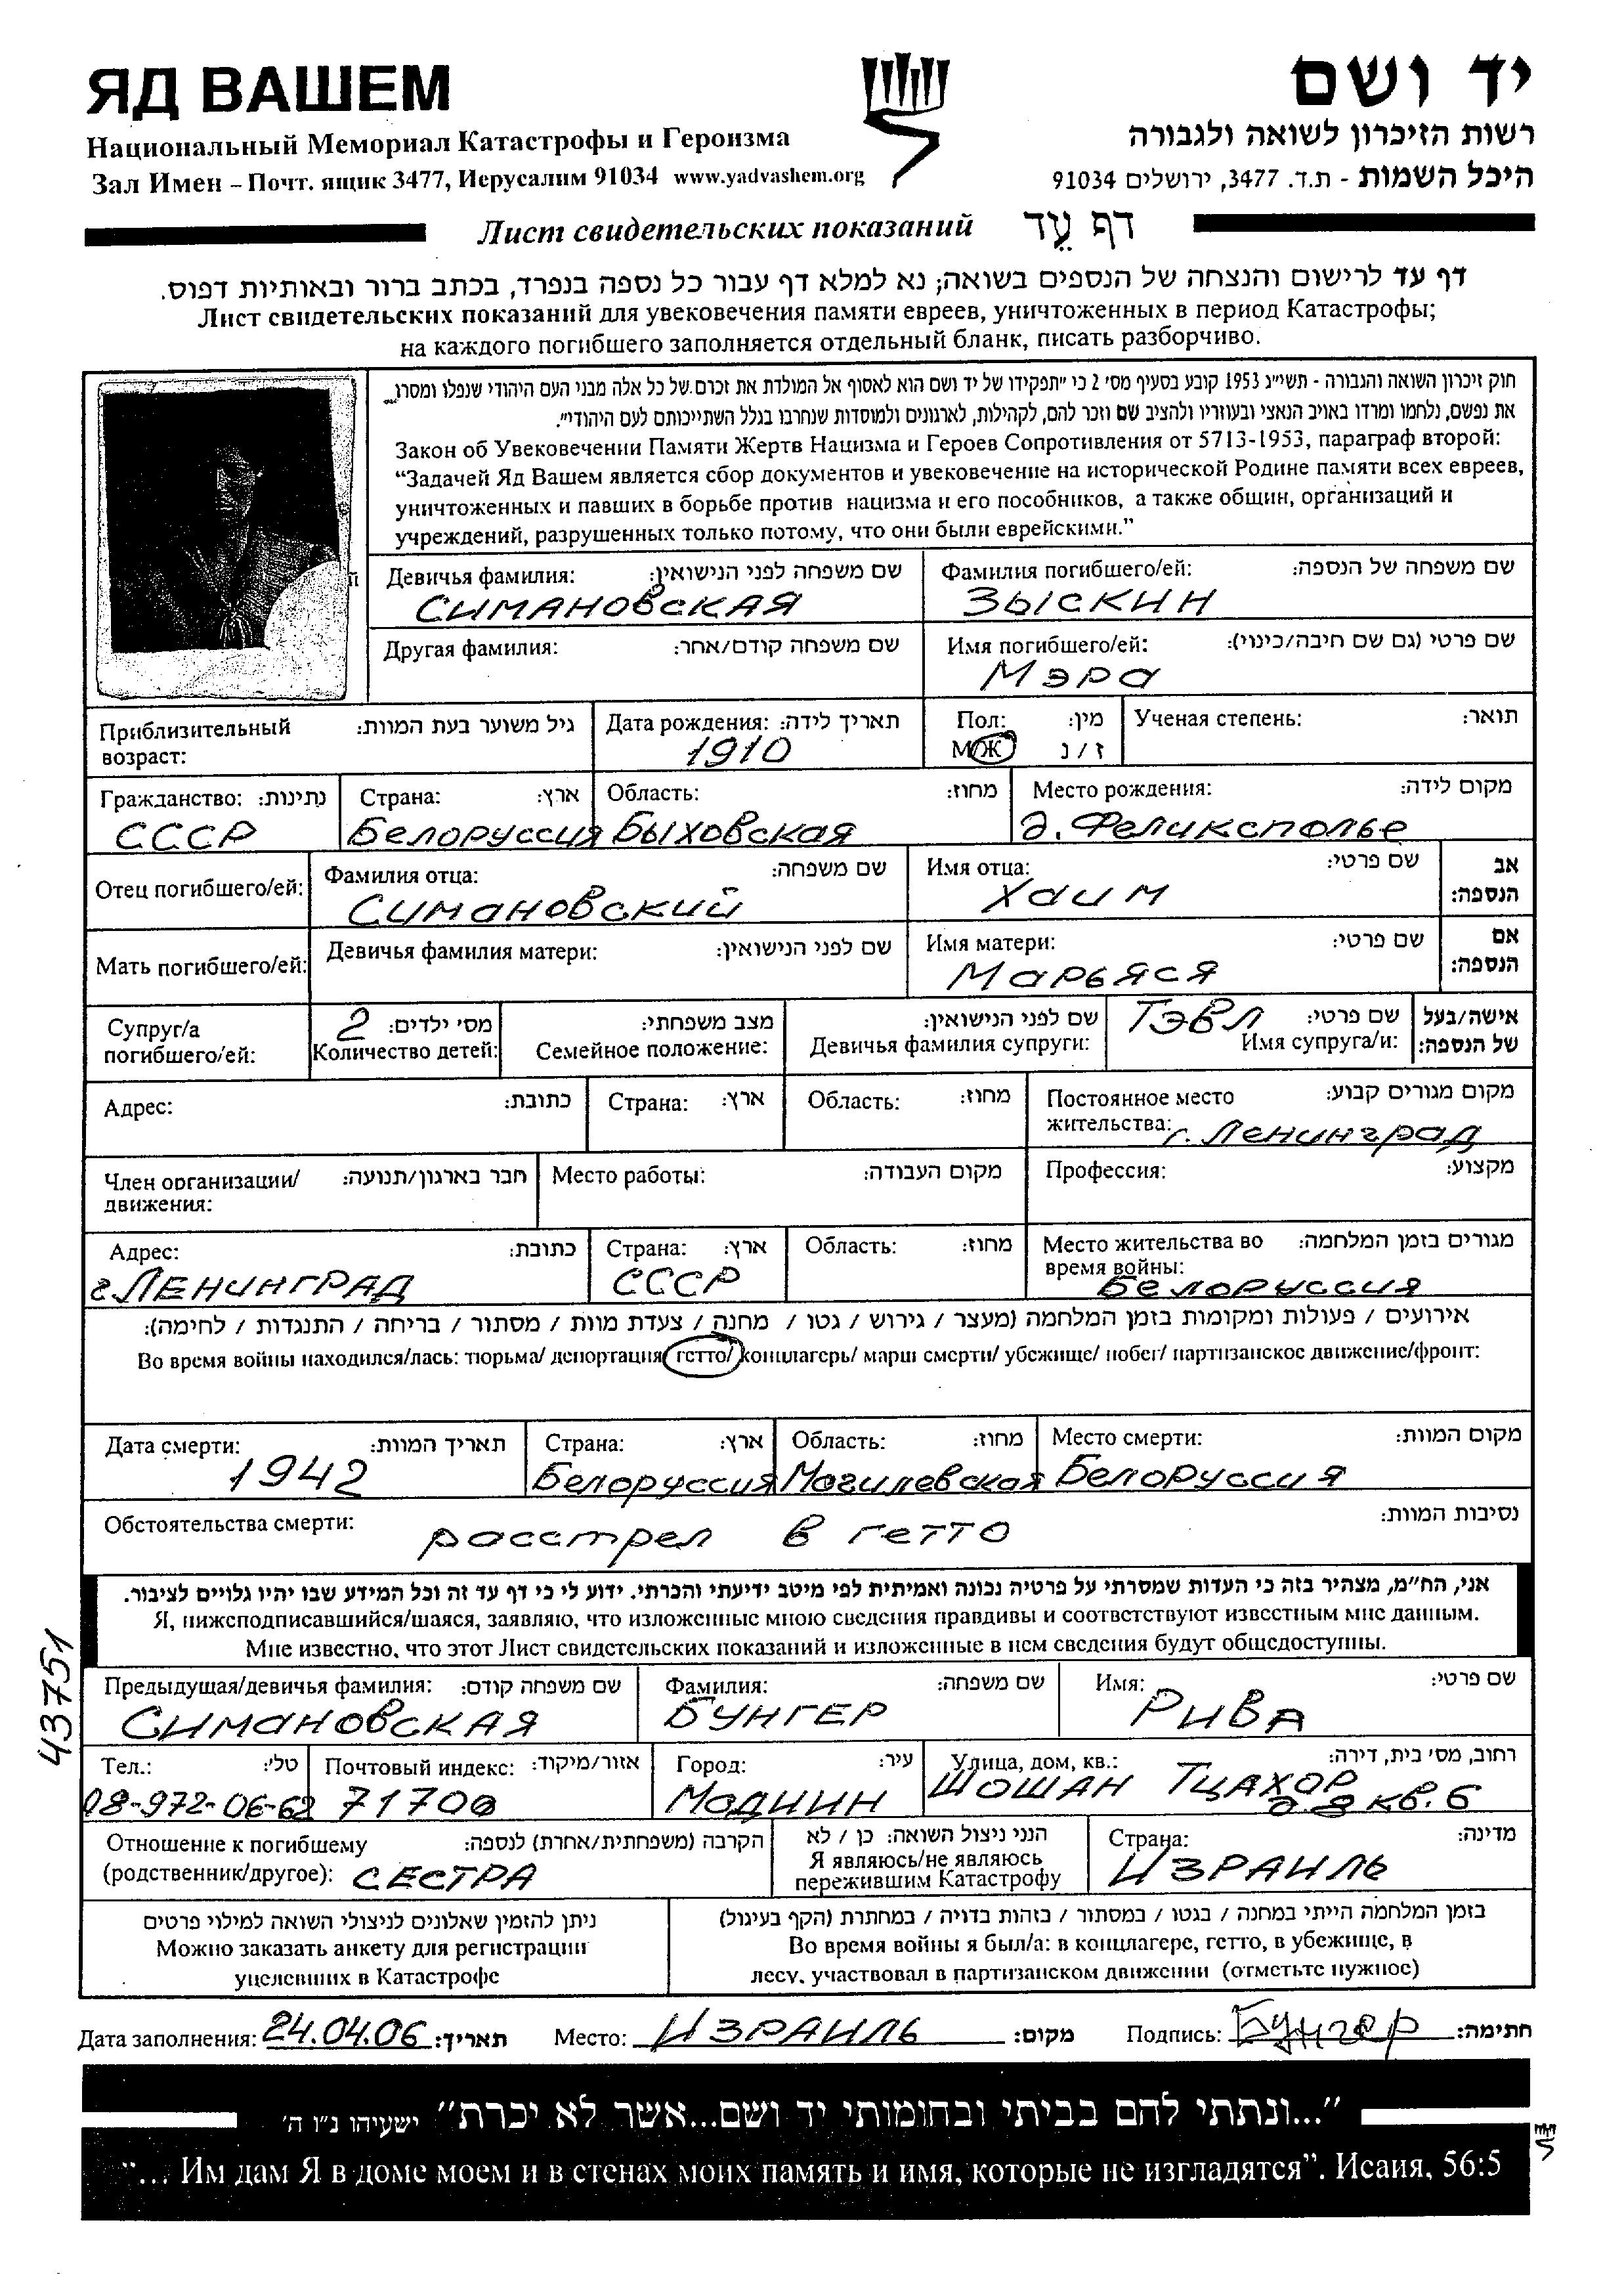 ЯД ВАШЕМ
יד ושם
Национальный Мемориал Катастрофы и Героизма
רשות הזיכרון לשואה ולגבורה
Зал Имен – Почт. ящик 3477, Иерусалим 91034 www.yadvashem.org
היכל השמות - ת.ד. 3477, ירושלים 91034
Лист свидетельских показаний דף עֵד
דף עד לרישום והנצחה של הנספים בשואה; נא למלא דף עבור כל נספה בנפרד, בכתב ברור ובאותיות דפוס.
Лист свидетельских показаний для увековечения памяти евреев, уничтоженных в период Катастрофы;
на каждого погибшего заполняется отдельный бланк, писать разборчиво.
חוק זיכרון השואה והגבורה - תשי״ג 1953 קובע בסעיף מס׳ 2 כי ״תפקידו של יד ושם הוא לאסוף אל המולדת את זכרם של כל אלה מבני העם היהודי שנפלו ומסרו
את נפשם, נלחמו ומרדו באויב הנאצי ובעוזריו ולהציב שם וזכר להם, לקהילות, לארגונים ולמוסדות שנחרבו בגלל השתייכותם לעם היהודי״.
Закон об Увековечении Памяти Жертв Нацизма и Героев Сопротивления от 5713-1953, параграф второй:
“Задачей Яд Вашем является сбор документов и увековечение на исторической Родине памяти всех евреев,
уничтоженных и павших в борьбе против нацизма и его пособников, а также общин, организаций и
учреждений, разрушенных только потому, что они были еврейскими.”
Девичья фамилия: שם משפחה לפני הנישואין: Фамилия погибшего/ей: שם משפחה של הנספה:
СИМАНОВСКАЯ ЗЫСКИН
Другая фамилия: שם משפחה קודם/אחר: Имя погибшего/ей: שם פרטי (גם שם חיבה/כינוי):
Мэра
Приблизительный возраст: גיל משוער בעת המוות: Дата рождения: תאריך לידה: Пол: מין: Ученая степень: תואר:
1910 М/Ж ז / נ
Гражданство: נתינות: Страна: ארץ: Область: מחוז: Место рождения: מקום לידה:
СССР Белоруссия Быховская д. Феликсполье
Отец погибшего/ей: Фамилия отца: שם משפחה: Имя отца: שם פרטי: אב הנספה:
Симановский Хаим
Мать погибшего/ей: Девичья фамилия матери: שם לפני הנישואין: Имя матери: שם פרטי: אם הנספה:
Марьяся
Супруг/а погибшего/ей: 2 מס׳ ילדים: Количество детей: מצב משפחתי: Семейное положение: שם לפני הנישואין: Девичья фамилия супруги: Тэвл שם פרטי: Имя супруга/и: אישה/בעל של הנספה:
Адрес: כתובת: Страна: ארץ: Область: מחוז: Постоянное место жительства: מקום מגורים קבוע:
г. Ленинград
Член организации/движения: חבר בארגון/תנועה: Место работы: מקום העבודה: Профессия: מקצוע:
Адрес: כתובת: Страна: ארץ: Область: מחוז: Место жительства во время войны: מגורים בזמן המלחמה:
г. ЛЕНИНГРАД СССР Белоруссия
אירועים / פעולות ומקומות בזמן המלחמה (מעצר / גירוש / גטו / מחנה / צעדת מוות / מסתור / בריחה / התנגדות / לחימה):
Во время войны находился/лась: тюрьма/ депортация/ гетто/ концлагерь/ марш смерти/ убежище/ побег/ партизанское движение/фронт:
Дата смерти: תאריך המוות: Страна: ארץ: Область: מחוז: Место смерти: מקום המוות:
1942 Белоруссия Могилевская Белоруссия
Обстоятельства смерти: расстрел в гетто נסיבות המוות:
אני, הח״מ, מצהיר בזה כי העדות שמסרתי על פרטיה נכונה ואמיתית לפי מיטב ידיעתי והכרתי. ידוע לי כי דף עד זה וכל המידע שבו יהיו גלויים לציבור.
Я, нижеподписавшийся/шаяся, заявляю, что изложенные мною сведения правдивы и соответствуют известным мне данным.
Мне известно, что этот Лист свидетельских показаний и изложенные в нем сведения будут общедоступны.
43751
Предыдущая/девичья фамилия: שם משפחה קודם: Фамилия: שם משפחה: Имя: שם פרטי:
СИМАНОВСКАЯ БУНГЕР РИВА
Тел.: טל׳: Почтовый индекс: אזור/מיקוד: Город: עיר: Улица, дом, кв.: רחוב, מס׳ בית, דירה:
08-972-06-62 71700 Модиин ШОШАН ТЦАХОР д. 8 кв. 6
Отношение к погибшему (родственник/другое): הקרבה (משפחתית/אחרת) לנספה: הנני ניצול השואה: כן / לא Я являюсь/не являюсь пережившим Катастрофу Страна: מדינה:
СЕСТРА ИЗРАИЛЬ
ניתן להזמין שאלונים לניצולי השואה למילוי פרטים
Можно заказать анкету для регистрации
уцелевших в Катастрофе
בזמן המלחמה הייתי במחנה / בגטו / במסתור / בזהות בדויה / במחתרת (הקף בעיגול)
Во время войны я был/а: в концлагере, гетто, в убежище, в
лесу, участвовал в партизанском движении (отметьте нужное)
Дата заполнения: 24.04.06 תאריך: Место: ИЗРАИЛЬ מקום: Подпись: Бунгер חתימה:
״...ונתתי להם בביתי ובחומותי יד ושם...אשר לא יכרת״ ישעיהו נ״ו ה׳
“... Им дам Я в доме моем и в стенах моих память и имя, которые не изгладятся”. Исаия, 56:5